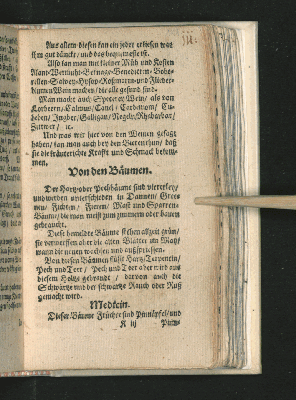 Aus allem diesen kan ein jeder erkiesen was
ihm gut dünckt / und das bequemeste ist.
Also kan man mit kleiner Müh und Kosten
Alant-Wermuht-Betonage-Benedicten-
rellen-Salvey-Hysop-Roßmarin- und Flieder-
blumen Wein machen / die alle gesund sind.
Man macht auch Speceren Wein / als von
Lorbeern / Calmus / Canel / Cardemom / Cu-
beben / Ingber / Galligan / Negeln / Rhebarbar /
Zittwer / ꝛc.
Und was wir hier von den Weinen gesagt
haben / kan man auch bey den Bieren thun / daß
sie die Kräuter ihr Krafft und Schmack bekom-
men.
Von den Bäumen.
Der Hartz-oder Pechbäume sind viererley /
und werden unterschieden in Dannen / Greo
nen / Fichten / Fieren / Mast und Sparren-
Bäum / die man meist zum zimmern oder bauen
gebraucht.
Diese bemeldte Bäume stehen allzeit grün /
sie verwerffen aber die alten Blätter im May /
wann die neuen wachsen und außspriessen.
Aus diesen Bäumen fliest Hartz / Terpentin /
Pech und Teer / Pech und Teer aber wird aus
diesem Holtze gebrandt / darvon auch die
Schwärtze und der schwartze Rauch oder Ruß
gemacht wird.
Medicin.
Dieser Bäume Früchte sind Pinnäpfel / und
K iij Pinns